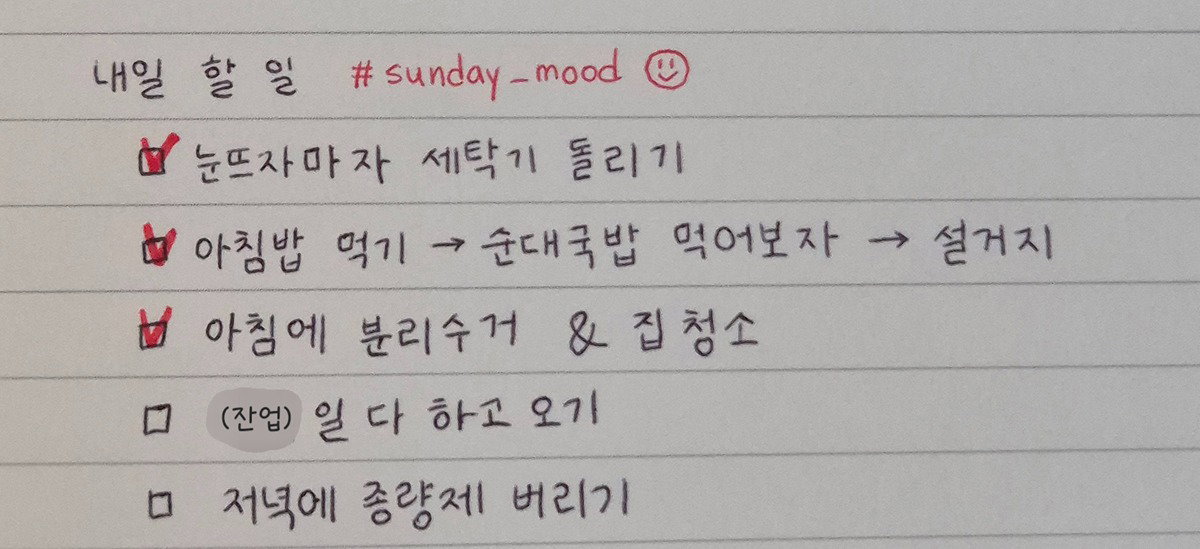 내일 할 일 #sunday_mood ☺
☑ 눈뜨자마자 세탁기 돌리기
☑ 아침밥 먹기 → 순대국밥 먹어보자 → 설거지
☑ 아침에 분리수거 & 집청소
☐ (잔업) 일 다 하고 오기
☐ 저녁에 종량제 버리기